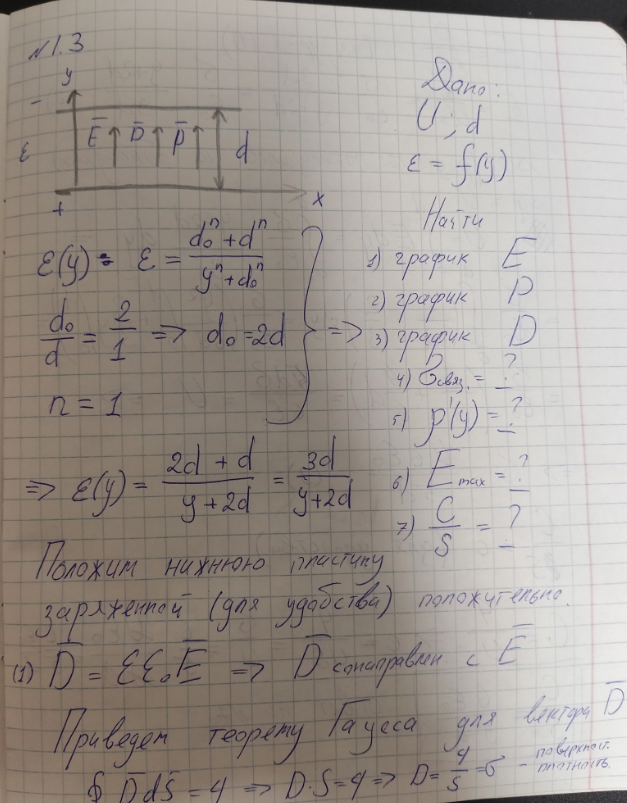 №1.3
y
−
ε E̅ D̅ P̅ d
+ x
Дано:
U ; d
ε = f(y)
Найти
1) график E
2) график P
3) график D
4) σсвяз. = ?
5) ρ'(y) = ?
6) Emax = ?
7) C/S = ?
ε(y) = ε = (d₀ⁿ + dⁿ)/(yⁿ + d₀ⁿ)
d₀/d = 2/1 => d₀ = 2d } =>
n = 1
=> ε(y) = (2d + d)/(y + 2d) = 3d/(y + 2d)
Положим нижнюю пластину
заряженной (для удобства) положительно.
(1) D̅ = εε₀E̅ => D̅ сонаправлен с E̅
Приведем теорему Гаусса для вектора D̅
∮ D̅dS̅ = q => D·S = q => D = q/S = σ – поверхност. плотность